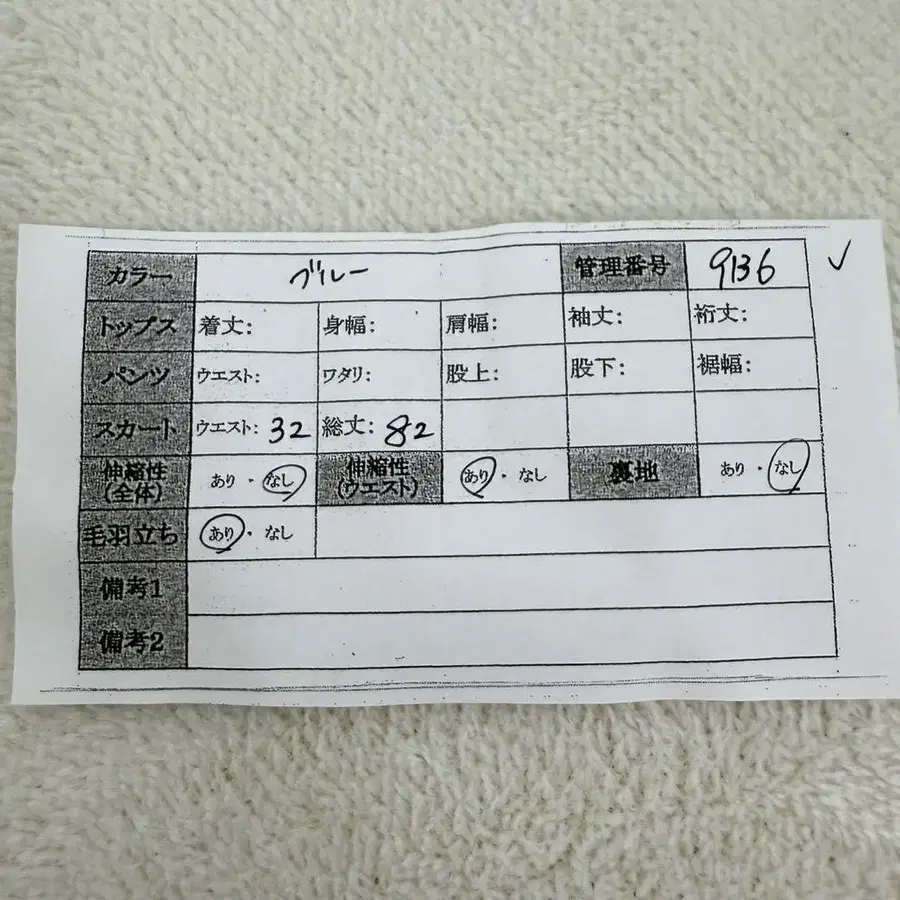 カラー ブルー 管理番号 9136 ✓
トップス 着丈: 身幅: 肩幅: 袖丈: 裄丈:
パンツ ウエスト: ワタリ: 股上: 股下: 裾幅:
スカート ウエスト: 32 総丈: 82
伸縮性 (全体) あり ・ なし 伸縮性 (ウエスト) あり ・ なし 裏地 あり ・ なし
毛羽立ち あり ・ なし
備考1
備考2